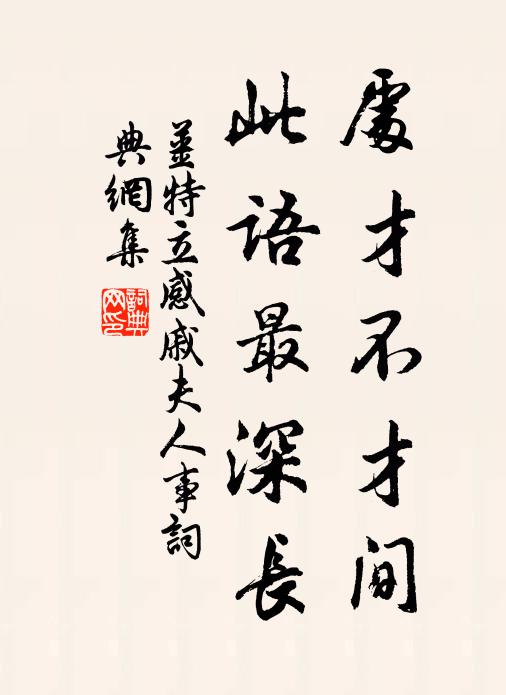 處才不才間
此語最深長
姜特立感戚夫人事詞
典網集
詞典
网印